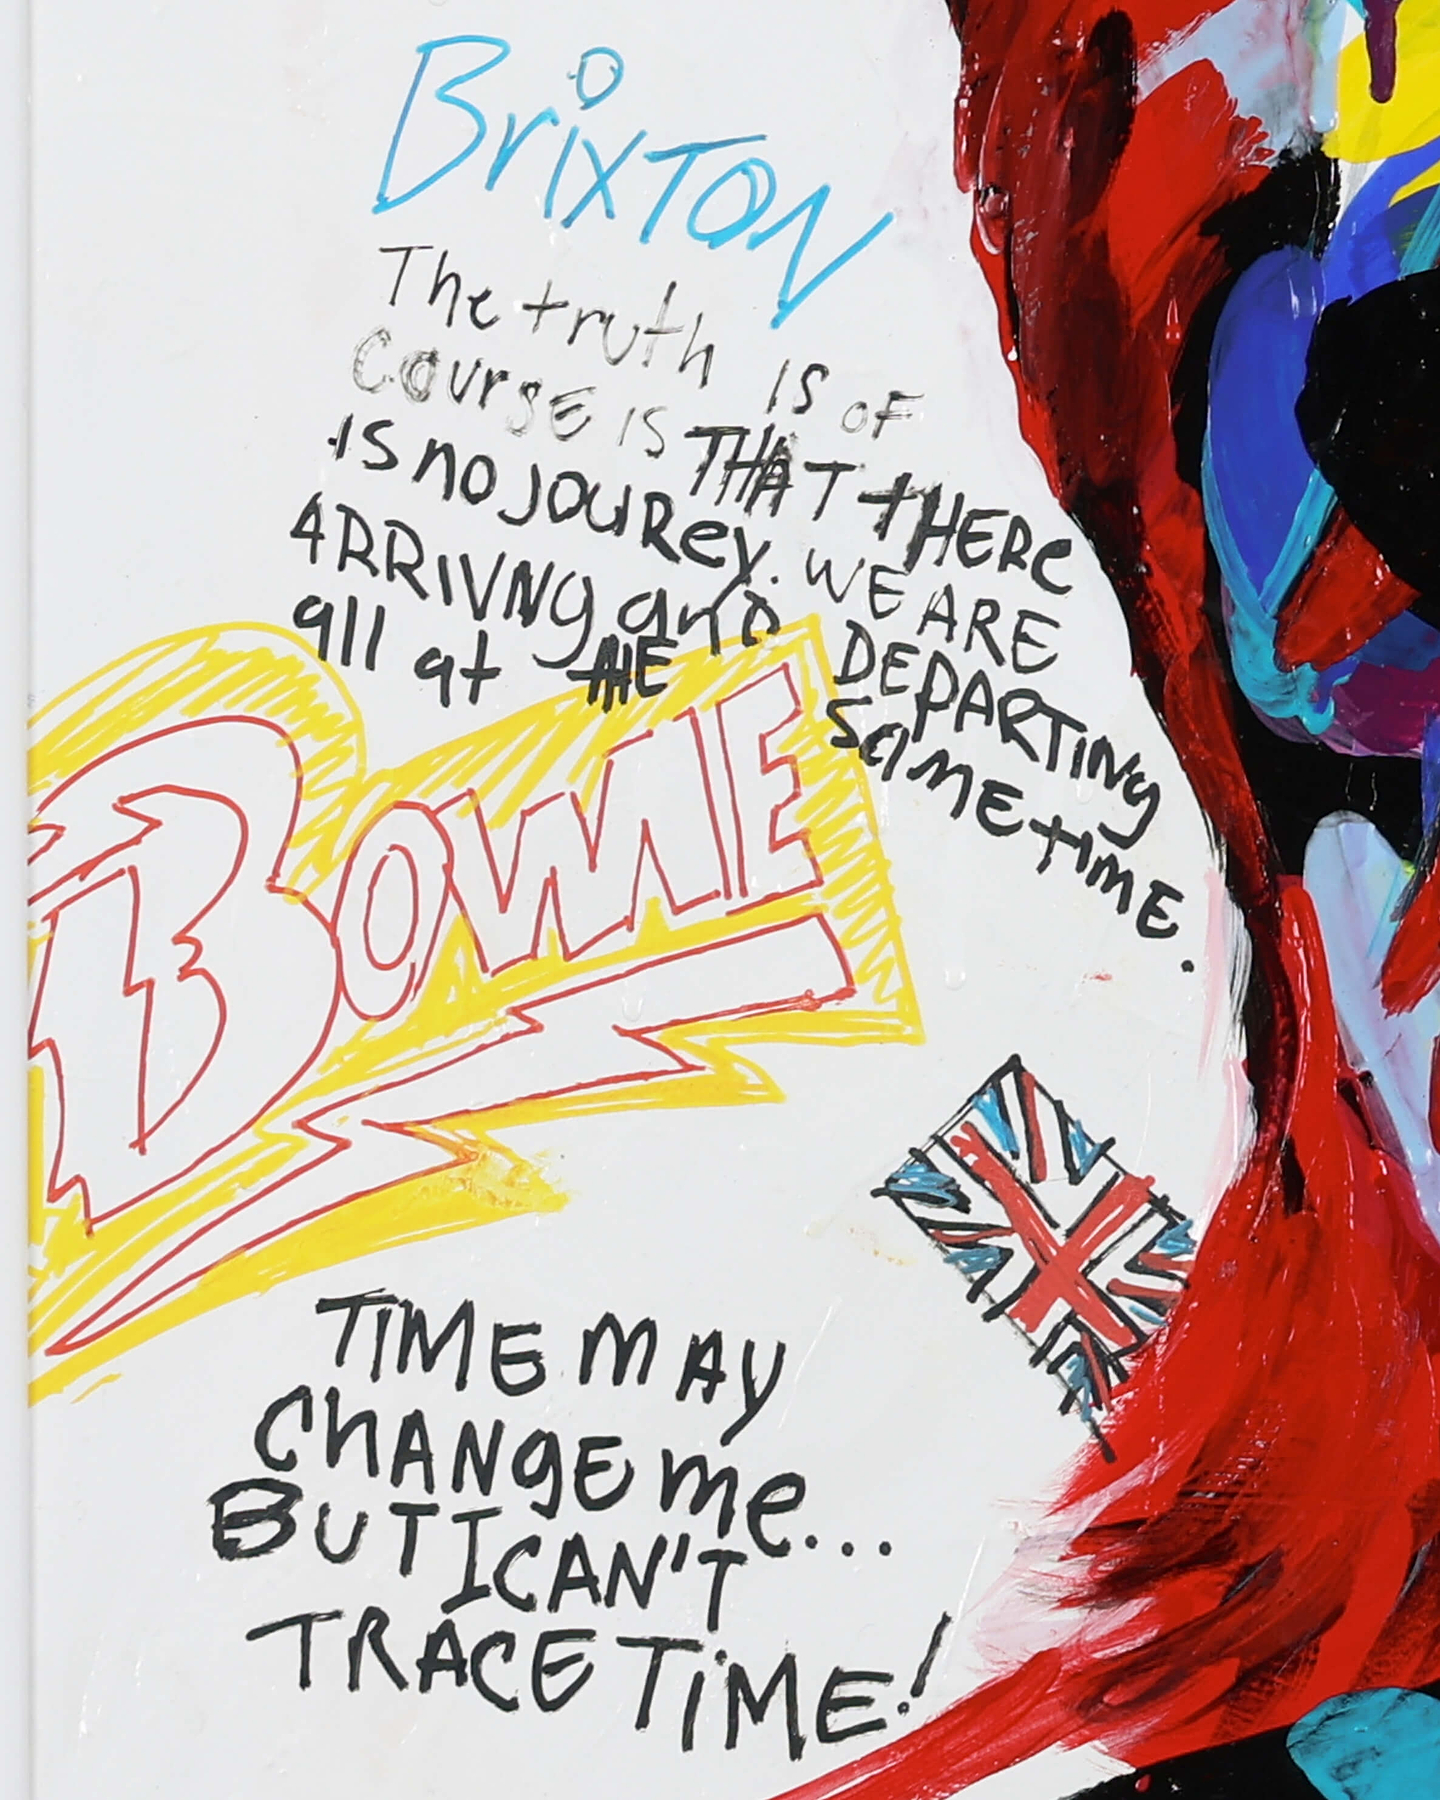 BrixTON
The truth IS OF
Course is THAT tHERe
is no jouRey. WE ARE
ARRIVNg and DEPARTiNg
all at tHE SaME tiME.
BOWIE
TIME MAY
ChANgE me...
BUT I CAN'T
TRACE TiME!